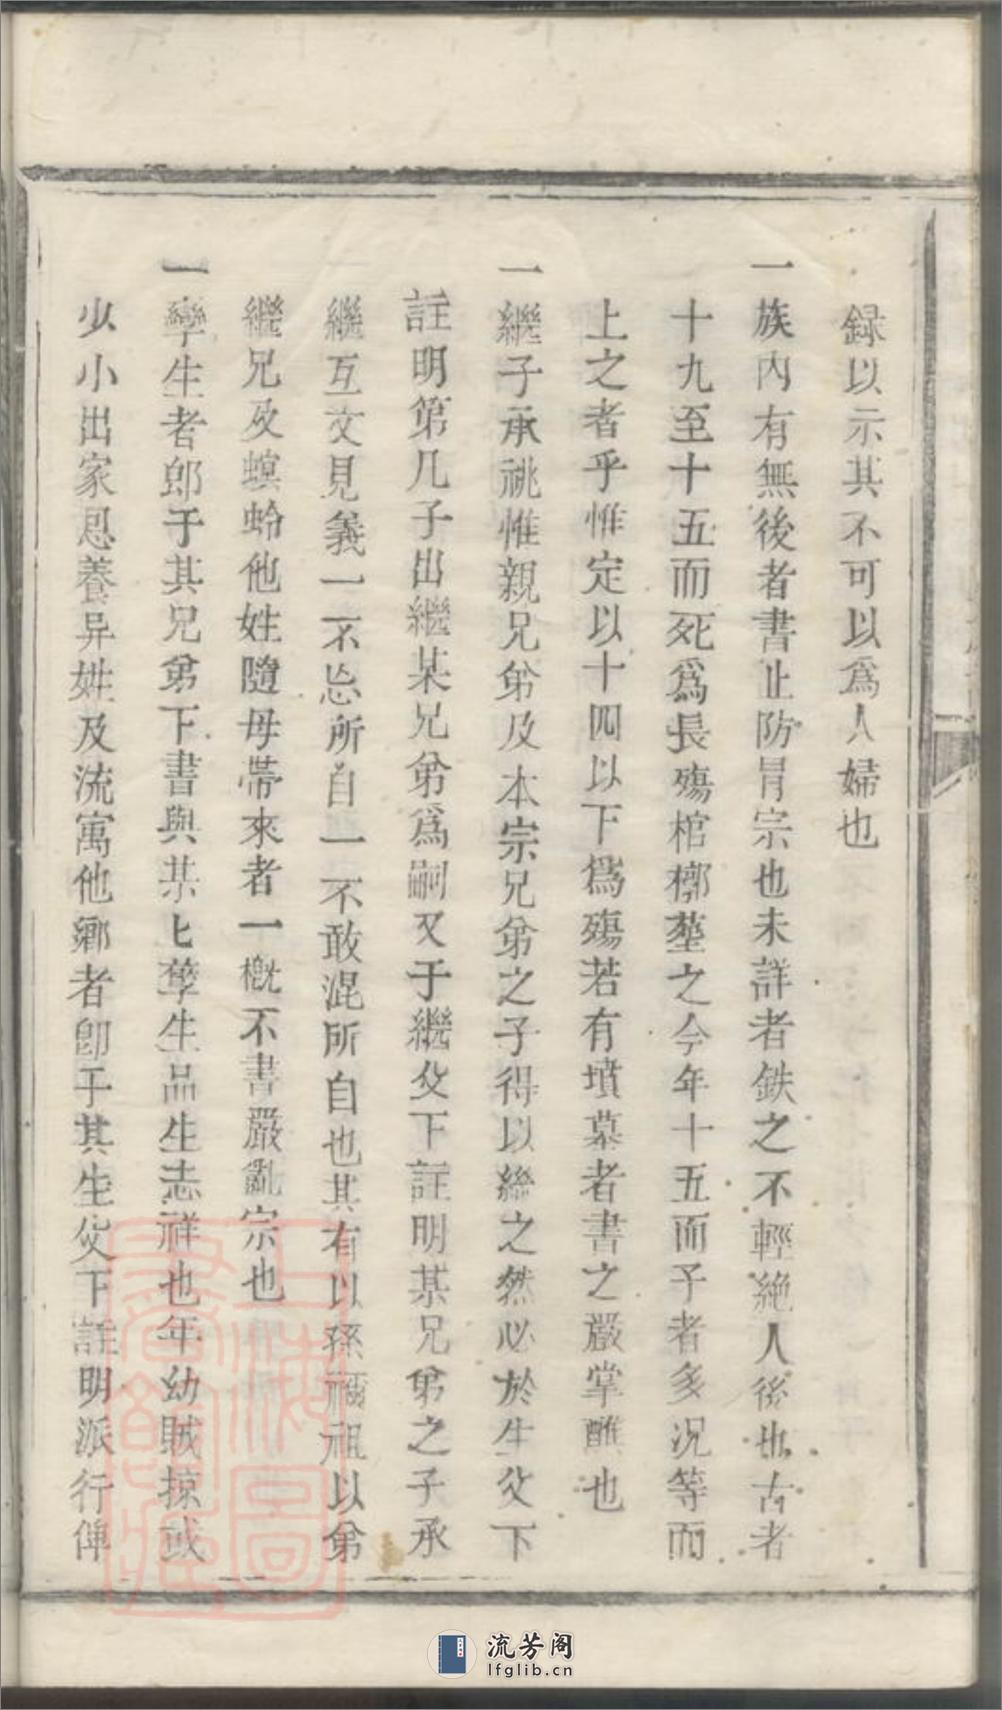 録以示其不可以爲人婦也
一族内有無後者書止防冐宗也未詳者鉄之不輕絶人後也古者
十九至十五而死爲長殤棺槨塟之今年十五而子者多况等而
上之者乎惟定以十四以下爲殤若有墳墓者書之嚴掌醮也
一繼子承祧惟親兄弟及本宗兄弟之子得以繼之然必於生父下
註明第几子出繼某兄弟爲嗣又于繼父下註明某兄弟之子承
繼互文見義一不忘所自一不敢混所自也其有以孫禰祖以弟
繼兄及螟蛉他姓隨母帶來者一槪不書嚴亂宗也
一孿生者即于其兄弟下書與某匕孿生品生志祥也年幼賊掠或
少小出家恩養异姓及流寓他鄉者卽于其生父下註明派行俾
上海圖書館藏
流芳阁
lfglib.cn